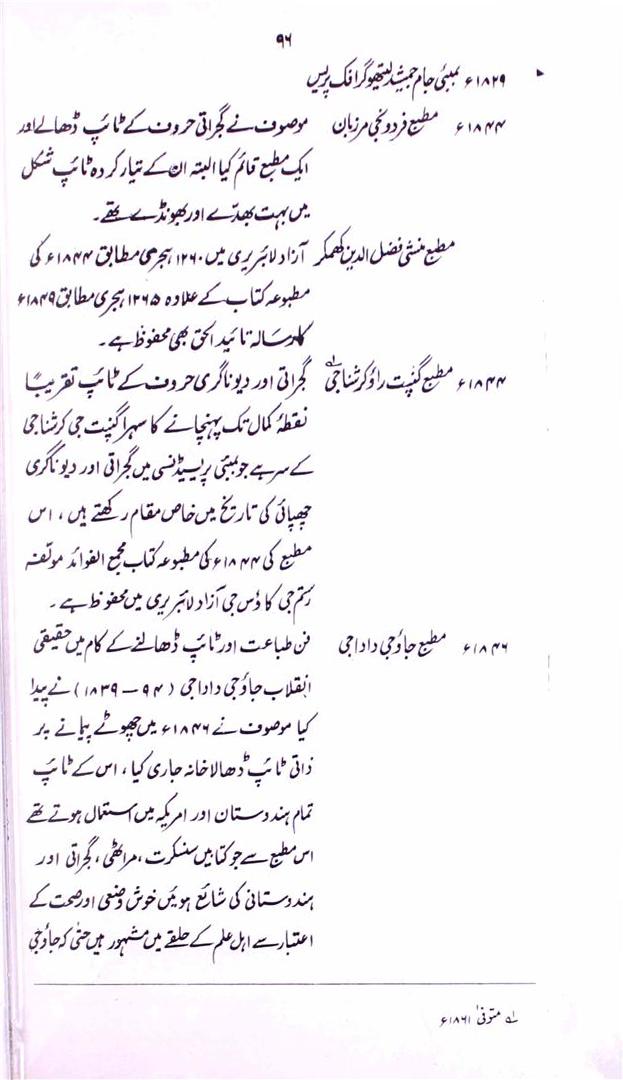 ۹۶
۱۸۲۹ء بمبئی جام جمشید لیتھوگرافک پریس
۱۸۴۴ء مطبع فردونجی مرزبان موصوف نے گجراتی حروف کے ٹائپ ڈھالے اور
ایک مطبع قائم کیا البتہ ان کے تیار کردہ ٹائپ شکل
میں بہت بھدّے اور بھونڈے تھے۔
مطبع منشی فضل الدین کھمکر آزاد لائبریری میں ۱۲۶۰ ہجری مطابق ۱۸۴۴ء کی
مطبوعہ کتاب کے علاوہ ۱۲۶۵ ہجری مطابق ۱۸۴۹ء
کا رسالہ تائید الحق بھی محفوظ ہے۔
۱۸۴۴ء مطبع گنپت راؤ کرشناجی لے گجراتی اور دیوناگری حروف کے ٹائپ تقریباً
نقطۂ کمال تک پہنچانے کا سہرا گنپت جی کرشناجی
کے سر ہے جو بمبئی پریسیڈنسی میں گجراتی اور دیوناگری
چھپائی کی تاریخ میں خاص مقام رکھتے ہیں، اس
مطبع کی ۱۸۴۴ء کی مطبوعہ کتاب مجمع الفوائد مولفہ
رستم جی کاؤس جی آزاد لائبریری میں محفوظ ہے۔
۱۸۴۶ء مطبع جاؤجی داداجی فن طباعت اور ٹائپ ڈھالنے کے کام میں حقیقی
انقلاب جاؤجی داداجی (۹۴ – ۱۸۳۹) نے پیدا
کیا موصوف نے ۱۸۴۶ء میں چھوٹے پیمانے پر
ذاتی ٹائپ ڈھالاخانہ جاری کیا، اس کے ٹائپ
تمام ہندوستان اور امریکہ میں استعمال ہوتے تھے
اس مطبع سے جو کتابیں سنکرت، مراٹھی، گجراتی اور
ہندوستانی کی شائع ہوئیں خوش وضعی اور صحت کے
اعتبار سے اہل علم کے حلقے میں مشہور ہیں حتیٰ کہ جاؤجی
لے متوفیٰ ۱۸۶۱ء